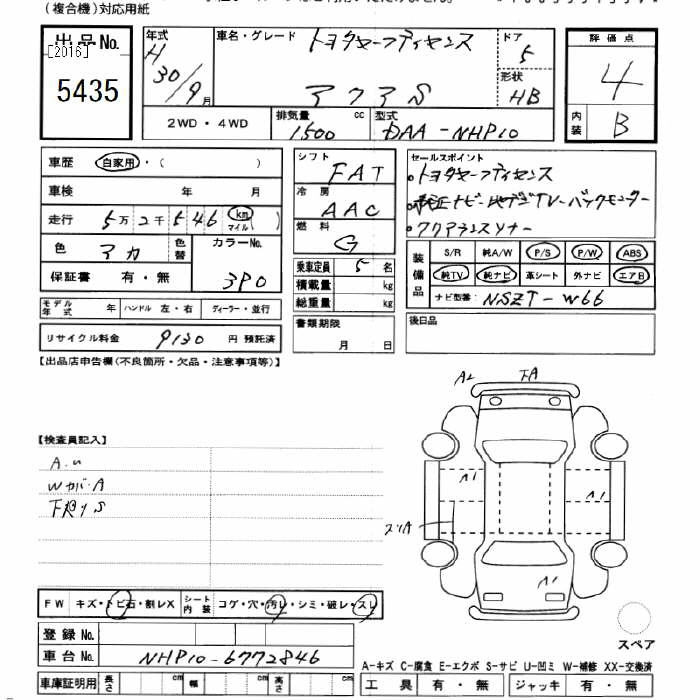 (複合機)対応用紙
出品No.
[2016]
5435
年式
H
30/9月
車名・グレード
トヨタセーフティセンス
アクア S
ドア
5
形状
HB
評価点
4
内装
B
2WD・4WD
排気量
1500 cc
型式
DAA-NHP10
車歴 自家用・( )
車検 年 月
走行 5万2千546 km マイル
色 アカ 色替
カラーNo.
3P0
保証書 有・無
シフト
FAT
冷房
AAC
燃料
G
乗車定員 5名
積載量 kg
総重量 kg
書類期限
月 日
セールスポイント
・トヨタセーフティセンス
・純正ナビ 地デジTV バックモニター
・クリアランスソナー
装備品
S/R 純A/W P/S P/W ABS
純TV 純ナビ 革シート 外ナビ エアB
ナビ型番: NSZT-W66
後日品
モデル年式 年 ハンドル 左・右 ディーラー・並行
リサイクル料金 9130 円 預託済
【出品店申告欄(不良箇所・欠品・注意事項等)】
【検査員記入】
A.u
Wカバ-A
下廻りS
A2
FA
A1
A1
スリA
A1
スペア
FW キズ・トビ石・割レX シート内装 コゲ・穴・汚レ・シミ・破レ・スレ
登録No.
車台No. NHP10-6772846
車庫証明用 長さ cm 幅 cm 高さ cm
A-キズ C-腐食 E-エクボ S-サビ U-凹ミ W-補修 XX-交換済
工具 有・無 ジャッキ 有・無